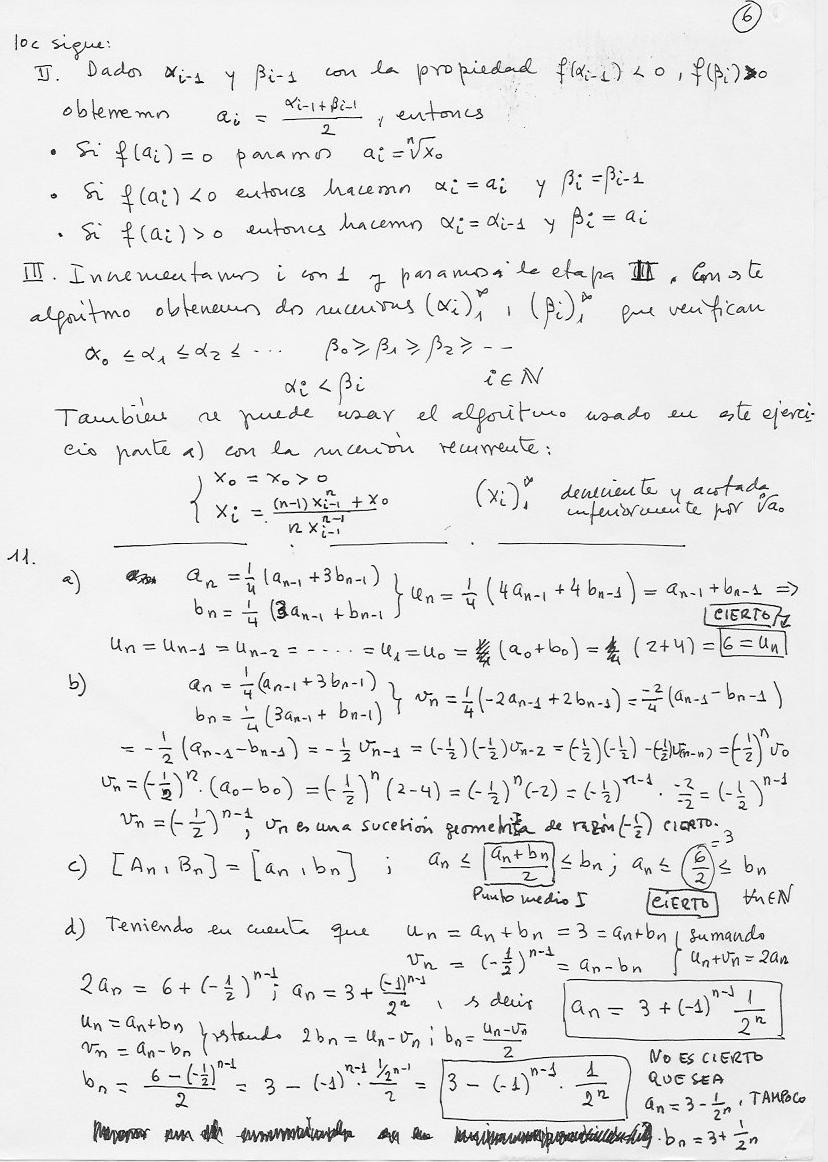 6
loc sigue:
II. Dados αi-1 y βi-1 con la propiedad f(αi-1) < 0, f(βi) > 0
obtenemos ai = (αi-1 + βi-1)/2, entonces
• Si f(ai) = 0 paramos ai = ⁿ√x₀
• Si f(ai) < 0 entonces hacemos αi = ai y βi = βi-1
• Si f(ai) > 0 entonces hacemos αi = αi-1 y βi = ai
III. Incrementamos i con 1 y paramos a la etapa II. Con este
algoritmo obtenemos dos sucesiones (αi)₁^∞, (βi)₁^∞ que verifican
α₀ ≤ α₁ ≤ α₂ ≤ ··· β₀ ≥ β₁ ≥ β₂ ≥ --
αi < βi i ∈ ℕ
También se puede usar el algoritmo usado en este ejerci-
cio parte a) con la sucesión recurrente:
{ x₀ = x₀ > 0
{ xi = ((n-1) x^n_{i-1} + x₀)/(n x^{n-1}_{i-1}) (xi)₁^∞ decreciente y acotada
inferiormente por ⁿ√a₀
11.
a) an = 1/4 (an-1 + 3bn-1)
bn = 1/4 (3an-1 + bn-1) } un = 1/4 (4an-1 + 4bn-1) = an-1 + bn-1 =>
CIERTO
un = un-1 = un-2 = ----- = u1 = u0 = (a0 + b0) = (2+4) = 6 = un
b) an = 1/4 (an-1 + 3bn-1)
bn = 1/4 (3an-1 + bn-1) } vn = 1/4 (-2an-1 + 2bn-1) = -2/4 (an-1 - bn-1)
= -1/2 (an-1 - bn-1) = -1/2 vn-1 = (-1/2)(-1/2) vn-2 = (-1/2)(-1/2) -(-1/2) v(n-n) = (-1/2)^n v0
vn = (-1/2)^n · (a0 - b0) = (-1/2)^n (2-4) = (-1/2)^n (-2) = (-1/2)^{n-1} · -2/-2 = (-1/2)^{n-1}
vn = (-1/2)^{n-1}, vn es una sucesión geometrica de razón (-1/2) CIERTO.
c) [An, Bn] = [an, bn] ; an ≤ (an+bn)/2 ≤ bn ; an ≤ 6/2 = 3 ≤ bn
Punto medio I CIERTO ∀n∈ℕ
d) Teniendo en cuenta que un = an + bn = 3 = an + bn | sumando
vn = (-1/2)^{n-1} = an - bn { un + vn = 2an
2an = 6 + (-1/2)^{n-1} ; an = 3 + (-1)^{n-1}/2^n, es decir an = 3 + (-1)^{n-1} 1/2^n
un = an + bn
vn = an - bn } restando 2bn = un - vn ; bn = (un - vn)/2
bn = (6 - (-1/2)^{n-1})/2 = 3 - (-1)^{n-1} · (1/2^{n-1})/2 = 3 - (-1)^{n-1} · 1/2^n
NO ES CIERTO
QUE SEA
an = 3 - 1/2^n, TAMPOCO
bn = 3 + 1/2^n